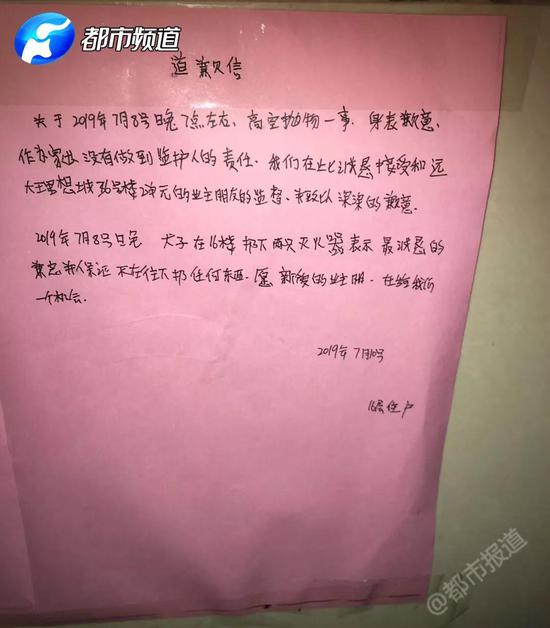 都市频道
道歉信
关于2019年7月8号晚7点左右、高空抛物一事.身表歉意、
作为家长没有做到监护人的责任.我们在上诚恳接受和远
大理想城36号楼2单元的业主朋友的监督.并致以深深的歉意.
2019年7月8号日晚 犬子在16楼扔下两只灭火器表示最诚恳的
歉意并保证不在往下扔任何东西.愿 新爱的业主朋.在给我们
一个机会.
2019年7月10号
16层住户
@都市报道